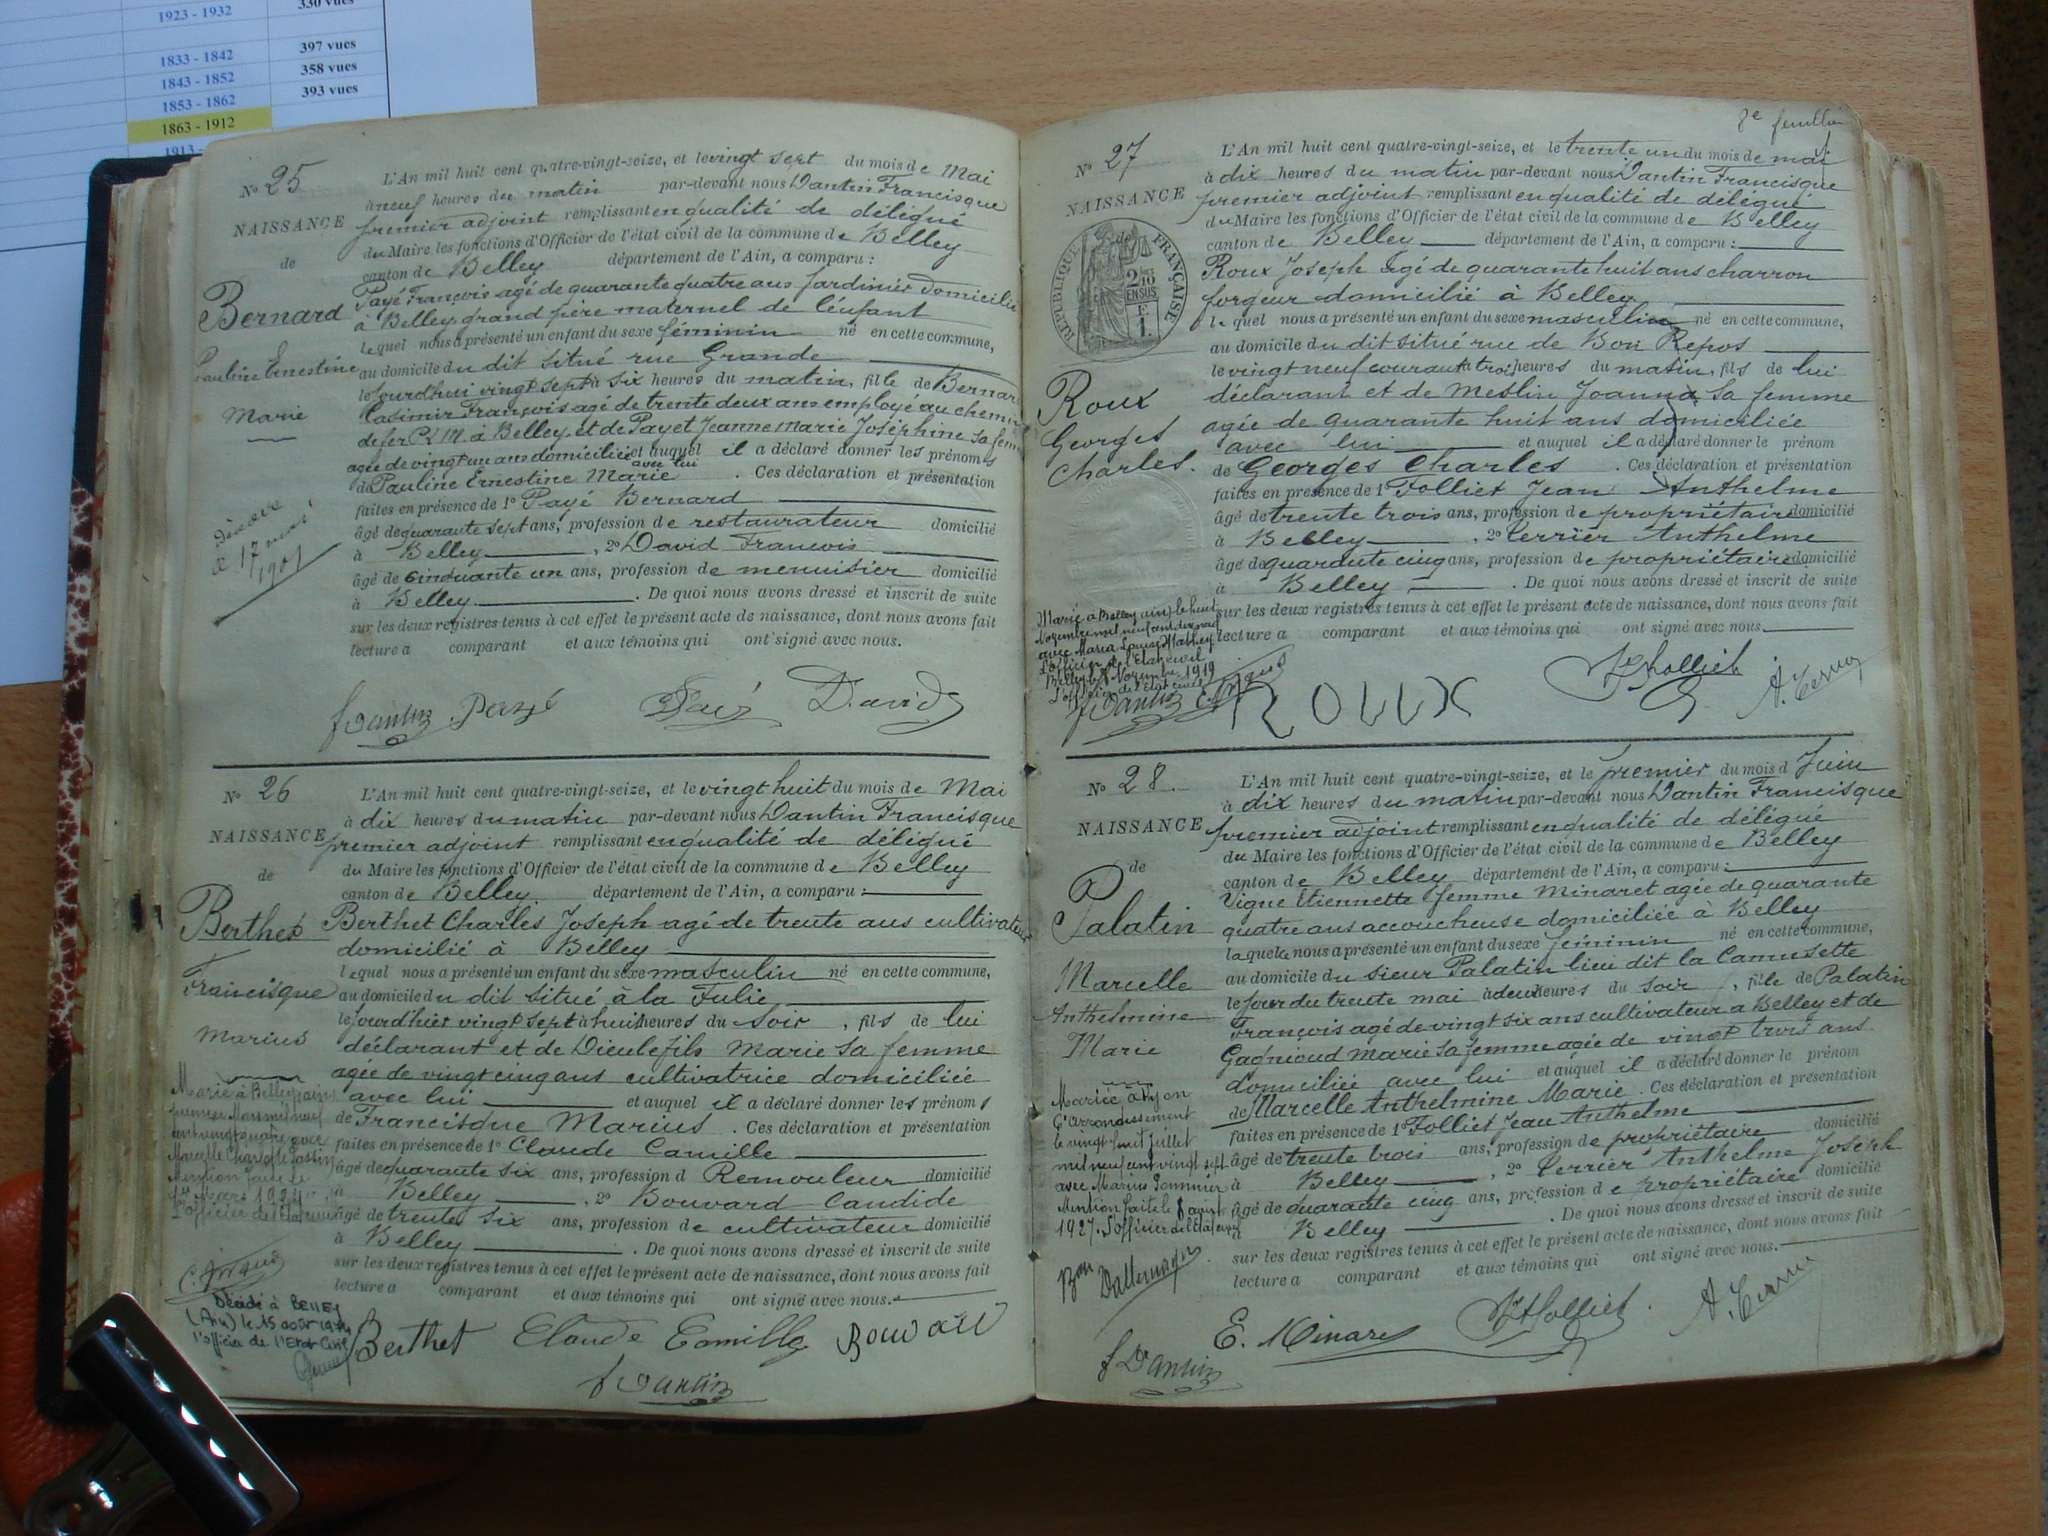 1923 - 1932 330 vues
1833 - 1842 397 vues
1843 - 1852 358 vues
1853 - 1862 393 vues
1863 - 1912
1913 -
N° 25
NAISSANCE
de
Bernard
Pauline Ernestine
Marie
L'An mil huit cent quatre-vingt-seize, et le vingt sept du mois de Mai
à neuf heures du matin par-devant nous Dantin Francisque
premier adjoint remplissant en qualité de délégué
du Maire les fonctions d'Officier de l'état civil de la commune de Belley
canton de Belley département de l'Ain, a comparu :
Payé François agé de quarante quatre ans jardinier domicilié
à Belley grand père maternel de l'enfant
lequel nous a présenté un enfant du sexe féminin né en cette commune,
au domicile du dit situé rue Grande
le jourd'hui vingt sept à six heures du matin, fille de Bernard
Casimir François agé de trente deux ans employé au chemin
de fer P.L.M. à Belley et de Payet Jeanne Marie Joséphine sa femme
agée de vingt un ans domiciliée avec lui et auquel il a déclaré donner les prénoms
de Pauline Ernestine Marie . Ces déclaration et présentation
faites en présence de 1° Payé Bernard
âgé de quarante sept ans, profession de restaurateur domicilié
à Belley , 2° David François
âgé de cinquante un ans, profession de menuisier domicilié
à Belley . De quoi nous avons dressé et inscrit de suite
sur les deux registres tenus à cet effet le présent acte de naissance, dont nous avons fait
lecture a comparant et aux témoins qui ont signé avec nous.
17
1901
f Dantin Payé Payé David
N° 26
NAISSANCE
de
Berthet
Francisque
Marius
L'An mil huit cent quatre-vingt-seize, et le vingt huit du mois de Mai
à dix heures du matin par-devant nous Dantin Francisque
premier adjoint remplissant en qualité de délégué
du Maire les fonctions d'Officier de l'état civil de la commune de Belley
canton de Belley département de l'Ain, a comparu :
Berthet Charles Joseph agé de trente ans cultivateur
domicilié à Belley
lequel nous a présenté un enfant du sexe masculin né en cette commune,
au domicile du dit situé à la Tulie
le jourd'hier vingt sept à huit heures du soir , fils de lui
déclarant et de Dieulefils Marie sa femme
agée de vingt cinq ans cultivatrice domiciliée
avec lui et auquel il a déclaré donner les prénoms
de Francisque Marius . Ces déclaration et présentation
faites en présence de 1° Claude Camille
âgé de quarante six ans, profession d Remouleur domicilié
à Belley , 2° Bouvard Candide
âgé de trente six ans, profession de cultivateur domicilié
à Belley . De quoi nous avons dressé et inscrit de suite
sur les deux registres tenus à cet effet le présent acte de naissance, dont nous avons fait
lecture a comparant et aux témoins qui ont signé avec nous.
Marié à Belley (ain)
premier Mars mil neuf
cent vingt quatre avec
Marcelle Charlotte
Mention faite le
1er Mars 1924
l'officier de l'état civil
Décédé à BELLEY
(Ain) le 15 août
l'officier de l'Etat Civil
Berthet Claude Camille Bouvard
f Dantin
8e feuillet
N° 27
NAISSANCE
RÉPUBLIQUE FRANÇAISE
2/10 EN SUS
Roux
Georges
Charles.
L'An mil huit cent quatre-vingt-seize, et le trente un du mois de mai
à dix heures du matin par-devant nous Dantin Francisque
premier adjoint remplissant en qualité de délégué
du Maire les fonctions d'Officier de l'état civil de la commune de Belley
canton de Belley département de l'Ain, a comparu :
Roux Joseph agé de quarante huit ans charron
forgeur domicilié à Belley
lequel nous a présenté un enfant du sexe masculin né en cette commune,
au domicile du dit situé rue de Bon Repos
le vingt neuf courant à trois heures du matin, fils de lui
déclarant et de Meslin Joanna sa femme
agée de quarante huit ans domiciliée
avec lui et auquel il a déclaré donner le prénom
de Georges Charles . Ces déclaration et présentation
faites en présence de 1° Folliet Jean Anthelme
âgé de trente trois ans, profession de propriétaire domicilié
à Belley , 2° Perrier Anthelme
âgé de quarante cinq ans, profession de propriétaire domicilié
à Belley . De quoi nous avons dressé et inscrit de suite
sur les deux registres tenus à cet effet le présent acte de naissance, dont nous avons fait
lecture a comparant et aux témoins qui ont signé avec nous
Marié à Belley (ain) le huit
Novembre mil neuf cent dix neuf
avec Maria Louise Mathey
l'officier de l'état civil
Belley le 8 Novembre 1919
l'officier de l'état civil
f Dantin ROUX
N° 28
NAISSANCE
de
Palatin
Marcelle
Anthelmine
Marie
L'An mil huit cent quatre-vingt-seize, et le premier du mois d Juin
à dix heures du matin par-devant nous Dantin Francisque
premier adjoint remplissant en qualité de délégué
du Maire les fonctions d'Officier de l'état civil de la commune de Belley
canton de Belley département de l'Ain, a comparu :
Vigne Etiennette femme Minaret agée de quarante
quatre ans accoucheuse domiciliée à Belley
laquelle nous a présenté un enfant du sexe féminin né en cette commune,
au domicile du sieur Palatin lieu dit la Camusette
le jour du trente mai à deux heures du soir , fille de Palatin
François agé de vingt six ans cultivateur a Belley et de
Gagnioud Marie sa femme agée de vingt trois ans
domiciliée avec lui et auquel il a déclaré donner le prénom
de Marcelle Anthelmine Marie . Ces déclaration et présentation
faites en présence de 1° Folliet Jean Anthelme
âgé de trente trois ans, profession de propriétaire domicilié
à Belley , 2° Perrier Anthelme Joseph
âgé de quarante cinq ans, profession de propriétaire domicilié
Belley . De quoi nous avons dressé et inscrit de suite
sur les deux registres tenus à cet effet le présent acte de naissance, dont nous avons fait
lecture a comparant et aux témoins qui ont signé avec nous.
Mariée à Lyon
6e arrondissement
le vingt huit juillet
mil neuf cent vingt sept
avec Marius Pommier
Mention faite le 8 août
1927. l'officier de l'état civil
E. Minaret
f Dantin